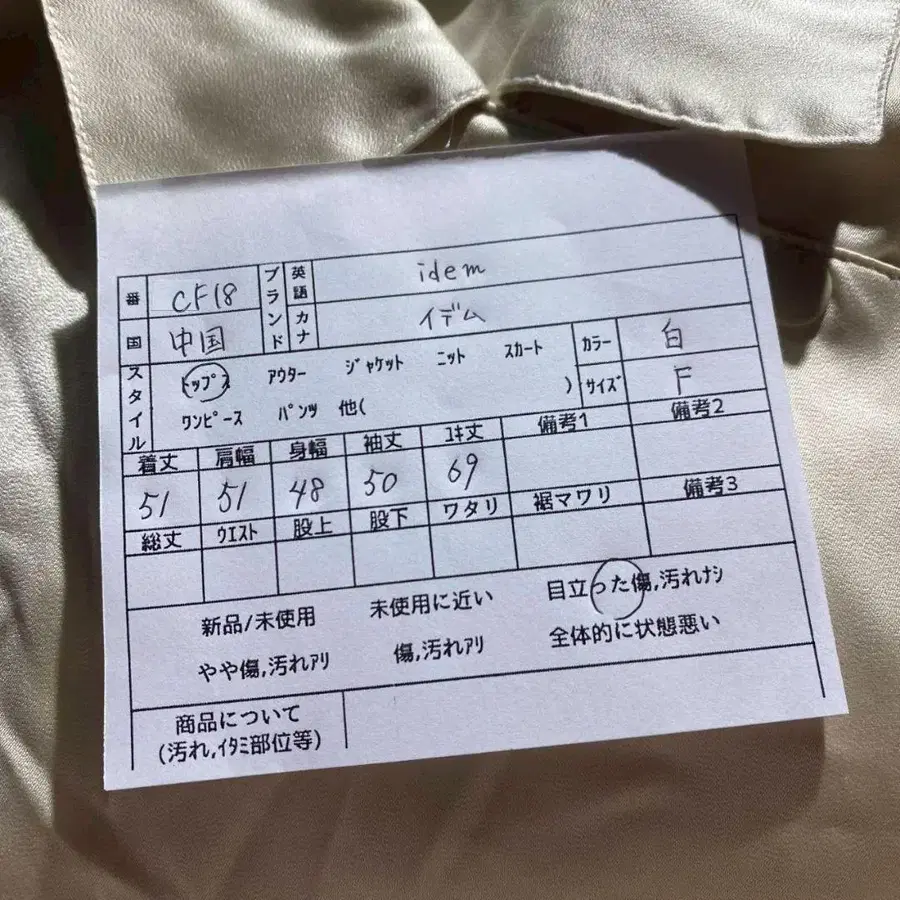 番 CF18 ブランド 英語 idem
国 中国 カナ イデム
スタイル トップス アウター ジャケット ニット スカート カラー 白
ワンピース パンツ 他( ) サイズ F
着丈 肩幅 身幅 袖丈 ユキ丈 備考1 備考2
51 51 48 50 69
総丈 ウエスト 股上 股下 ワタリ 裾マワリ 備考3
新品/未使用 未使用に近い 目立った傷,汚れナシ
やや傷,汚れアリ 傷,汚れアリ 全体的に状態悪い
商品について
(汚れ,イタミ部位等)